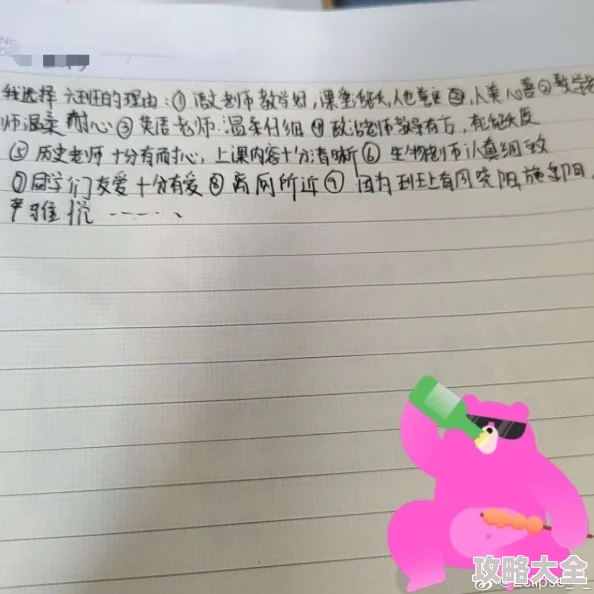 No
Da
我选择六班的理由：①语文老师教学好，课堂纪，人也善良②，人美心善②数学老
师温柔 耐心③英语老师.温柔仔细④政治老师教导有方，有纪度
⑤历史老师十分有耐心，上课内容十分清晰⑥生物老师认真细致
⑦同学们友爱十分有爱⑧离厕所近⑨因为班上有闵晓阳，施阳，
难忙……、
攻略大全
@Eclipse_-_